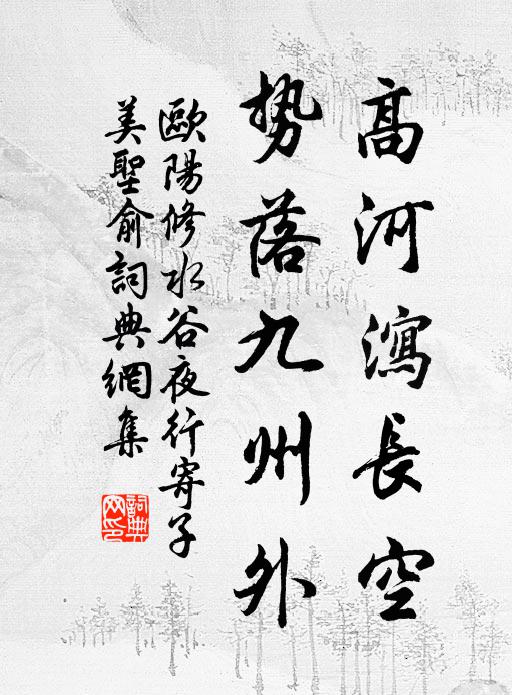 高河瀉長空
势落九州外
歐陽修水谷夜行寄子
美聖俞詞典網集
詞典网印